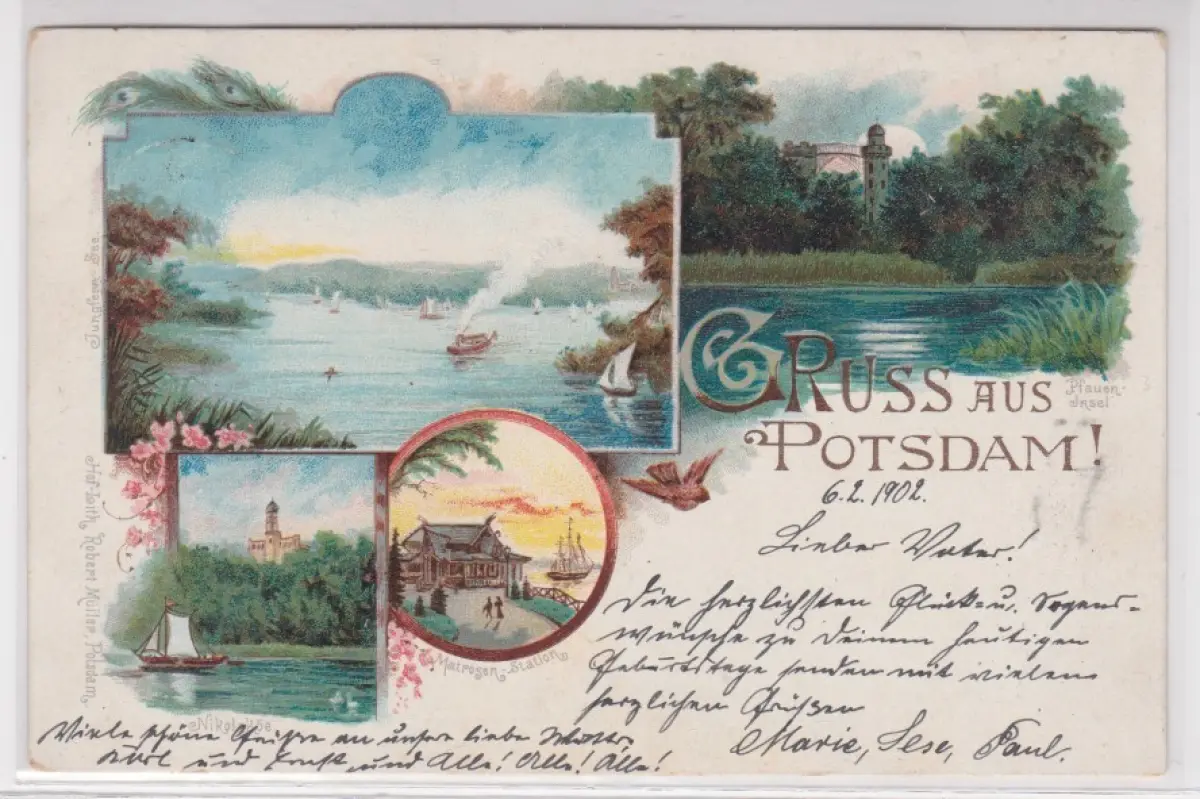 Jungfern-See.
Pfauen-
Insel
GRUSS AUS
POTSDAM!
6.2.1902.
Lieber Vater!
Die herzlichsten Glück- u. Segens-
wünsche zu Deinem heutigen
Geburtstage senden mit vielen
herzlichen Grüßen
Marie, Lese, Paul.
Matrosen-Station
Nikolskoe
Hof-Lith. Robert Müller, Potsdam.
Viele schöne Grüße an unsere liebe Mutter,
Karl und Ernst und Alle! Alle! Alle!